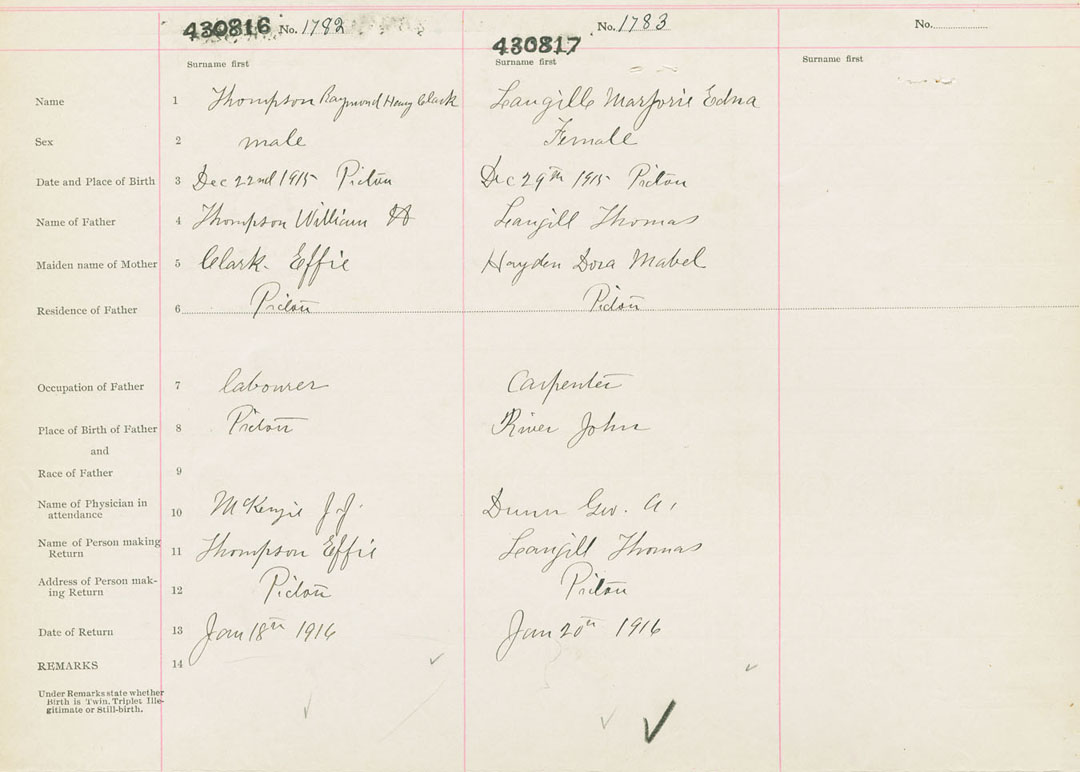 430816 No. 1782 No. 1783 No.
430817
Surname first Surname first Surname first
Name 1 Thompson Raymond Henry Clark Langille Marjorie Edna
Sex 2 male Female
Date and Place of Birth 3 Dec 22nd 1915 Pictou Dec 29th 1915 Pictou
Name of Father 4 Thompson William H Langill Thomas
Maiden name of Mother 5 Clark Effie Hayden Dora Mabel
Residence of Father 6 Pictou Pictou
Occupation of Father 7 labourer Carpenter
Place of Birth of Father 8 Pictou River John
and
Race of Father 9
Name of Physician in
attendance 10 McKenzie J.J. Dunn Geo. A.
Name of Person making
Return 11 Thompson Effie Langill Thomas
Address of Person mak-
ing Return 12 Pictou Pictou
Date of Return 13 Jan 18th 1916 Jan 20th 1916
REMARKS 14
Under Remarks state whether
Birth is Twin, Triplet Ille-
gitimate or Still-birth.